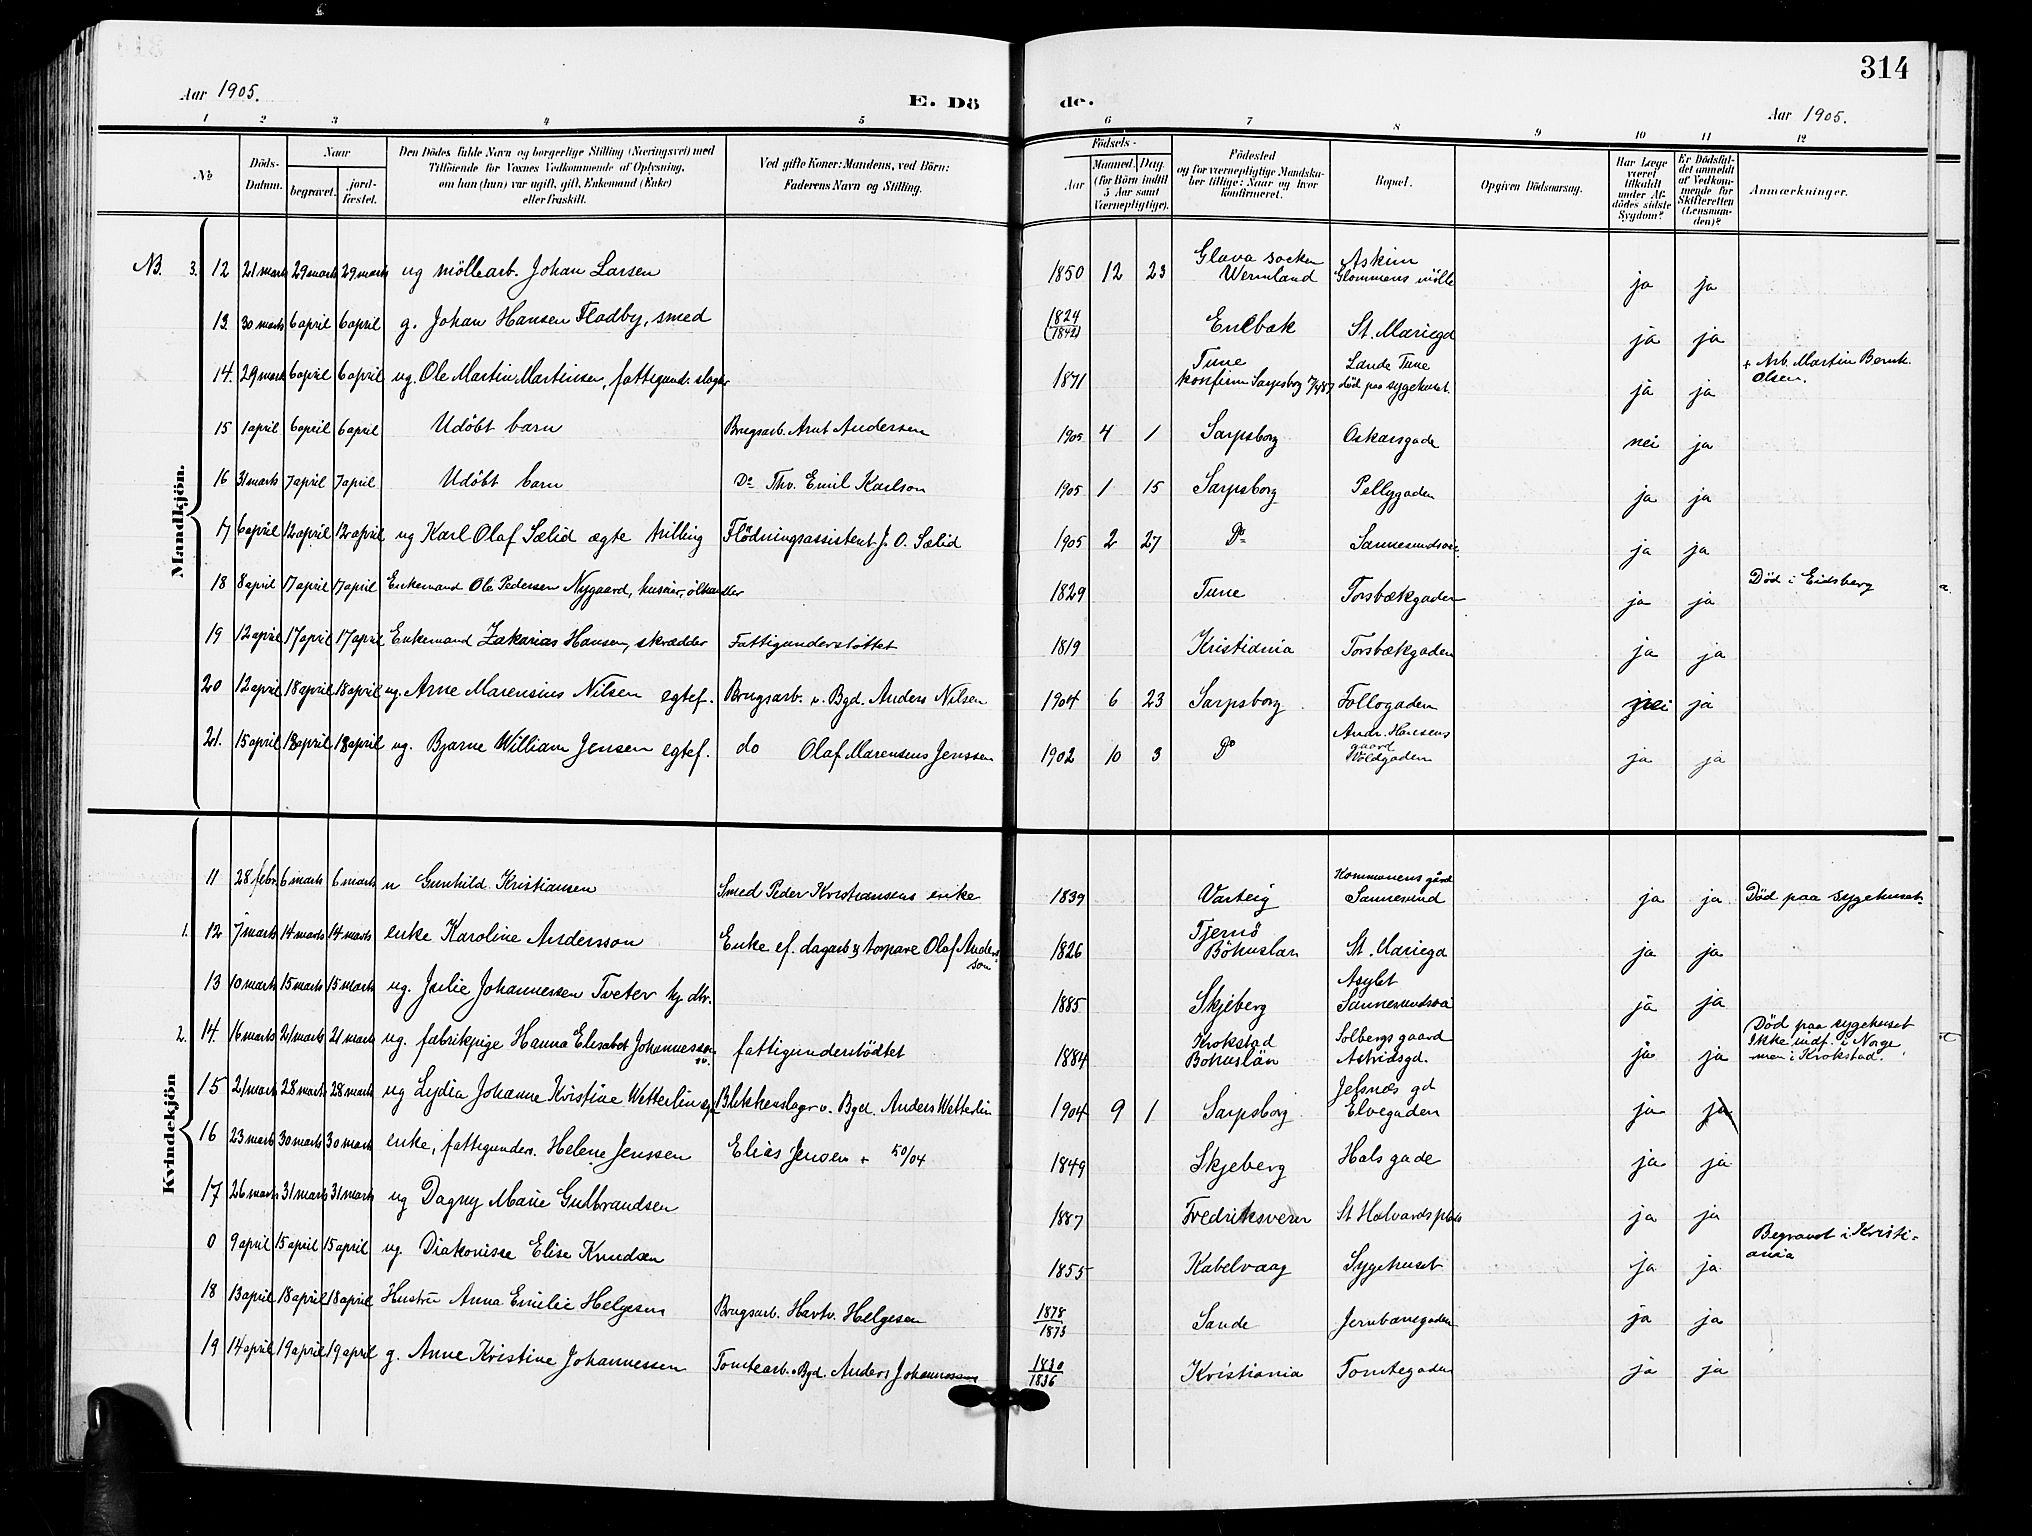 314
Aar 1905.
E. Dö de.
Aar 1905.
1 2 3 4 5 6 7 8 9 10 11 12
No
Döds-Datum.
Naar
begravet.
jord-fæstet.
Den Dödes fulde Navn og borgerlige Stilling (Næringsvei) med
Tilföiende for Voxnes Vedkommende af Oplysning,
om han (hun) var ugift, gift, Enkemand (Enke)
eller fraskilt.
Ved gifte Koner: Mandens, ved Börn:
Faderens Navn og Stilling.
Födsels-
Aar
Maaned. Dag.
(for Börn indtil
5 Aar samt
Værnepligtige).
Födested
og for værnepligtige Mandska-
ber tillige: Naar og hvor
konfirmeret.
Bopæl.
Opgiven Dödsaarsag.
Har Læge
været
tilkaldt
under Af-
dödes sidste
Sygdom?
Er Dödsfal-
det anmeldt
af Vedkom-
mende for
Skifteretten
(Lensman-
den)?
Anmærkninger.
Mandkjön.
NB. 3. 12 21 marts 29 marts 29 marts ug möllearb. Johan Larsen 1850 12 23 Glava socken Wermland Askim Glommens mölle ja ja
13. 30 marts 6 april 6 april g. Johan Hansen Fladby, smed 1824 (1842) Enebak St. Mariegd ja ja
14. 29 marts 6 april 6 april ug. Ole Martin Martinsen, fattigund. slagter 1871 Tune konfirm Sarpsborg Lande Tune död paa sygehuset. ja ja + Arb. Martin Bernt. Olsen.
15 1 april 6 april 6 april Udöbt barn Brugsarb. Arnt Andersen 1905 4 1 Sarpsborg Oskarsgade nei ja
16 31 marts 7 april 7 april Udöbt barn Do Thv. Emil Karlson 1905 1 15 Sarpsborg Pellygaden ja ja
17 6 april 12 april 12 april ug Karl Olaf Sælid ægte trilling Flödningsassistent J. O. Sælid 1905 2 27 Do Sannesundsvei ja ja
18 8 april 17 april 17 april Enkemand Ole Pedersen Nygaard, huseier, ölhandler 1829 Tune Torsbækgaden ja ja Död i Eidsberg
19 12 april 17 april 17 april Enkemand Zakarias Hansen, skrædder Fattigunderstöttet 1819 Kristiania Torsbækgaden ja ja
20 12 april 18 april 18 april ug. Arne Marensius Nilsen egtef. Brugsarb. v. Bgd. Anders Nilsen 1904 6 23 Sarpsborg Follogaden nei ja
21. 15 april 18 april 18 april ug. Bjarne William Jensen egtef. do Olaf Marensius Jenssen 1902 10 3 Do Andr. Hansens gaard Voldgaden ja ja
Kvindekjön
11 28 febr. 6 marts 6 marts n Gunhild Kristiansen Smed Peder Kristiansens enke 1839 Varteig Kommunens gård Sannesund ja ja Död paa sygehuset.
1. 12 7 marts 14 marts 14 marts enke Karoline Andersson Enke ef. dagarb & torpare Olaf Andersson 1826 Tjernö Bohuslan St. Mariegd ja ja
13 10 marts 15 marts 15 marts ug. Julie Johannessen Tveter hj. dtr. 1885 Skjeberg Asylet Sannesundsvei ja ja
2. 14. 16 marts 21 marts 21 marts ug. fabrikpige Hanna Elisabet Johannesson sv. fattigunderstödtet 1884 Krokstad Bohuslän Solbergs gaard Astridsgd. ja ja Död paa sygehuset Ikke indf. i Norge men i Krokstad.
15 21 marts 28 marts 28 marts ug Lydia Johanne Kristine Wetterlin eg. Blikkenslager v. Bgd. Anders Wetterlin 1904 9 1 Sarpsborg Jelsnæs gd Elvegaden ja ja
16 23 marts 30 marts 30 marts enke, fattigunders. Helene Jenssen Elias Jensen + 50/04 1849 Skjeberg Hals gade ja ja
17 26 marts 31 marts 31 marts ug Dagny Marie Gulbrandsen 1887 Fredriksværn St Halvards plads ja ja
0 9 april 15 april 15 april ug. Diakonisse Elise Knudsen 1855 Kabelvaag Sygehuset ja ja Begravet i Kristi-ania
18 13 april 18 april 18 april Hustru Anna Emilie Helgesen Brugsarb. Hartv. Helgesen 1878 1873 Sande Jernbanegaden ja ja
19 14 april 19 april 19 april g. Anne Kristine Johannessen Tomtearb. v. Bgd. Anders Johannessen 1830 1836 Kristiania Tomtegaden ja ja